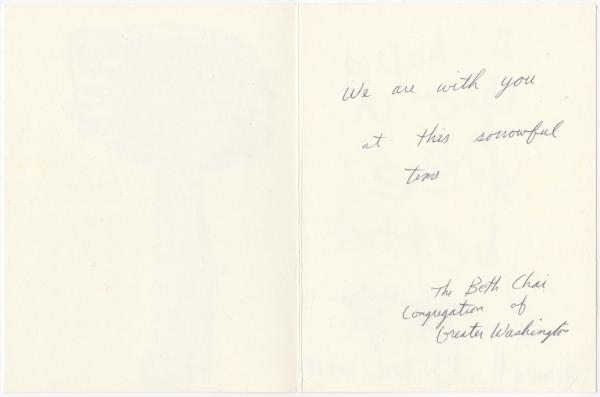 We are with you
at this sorrowful
time
The Beth Chai
Congregation of
Greater Washington